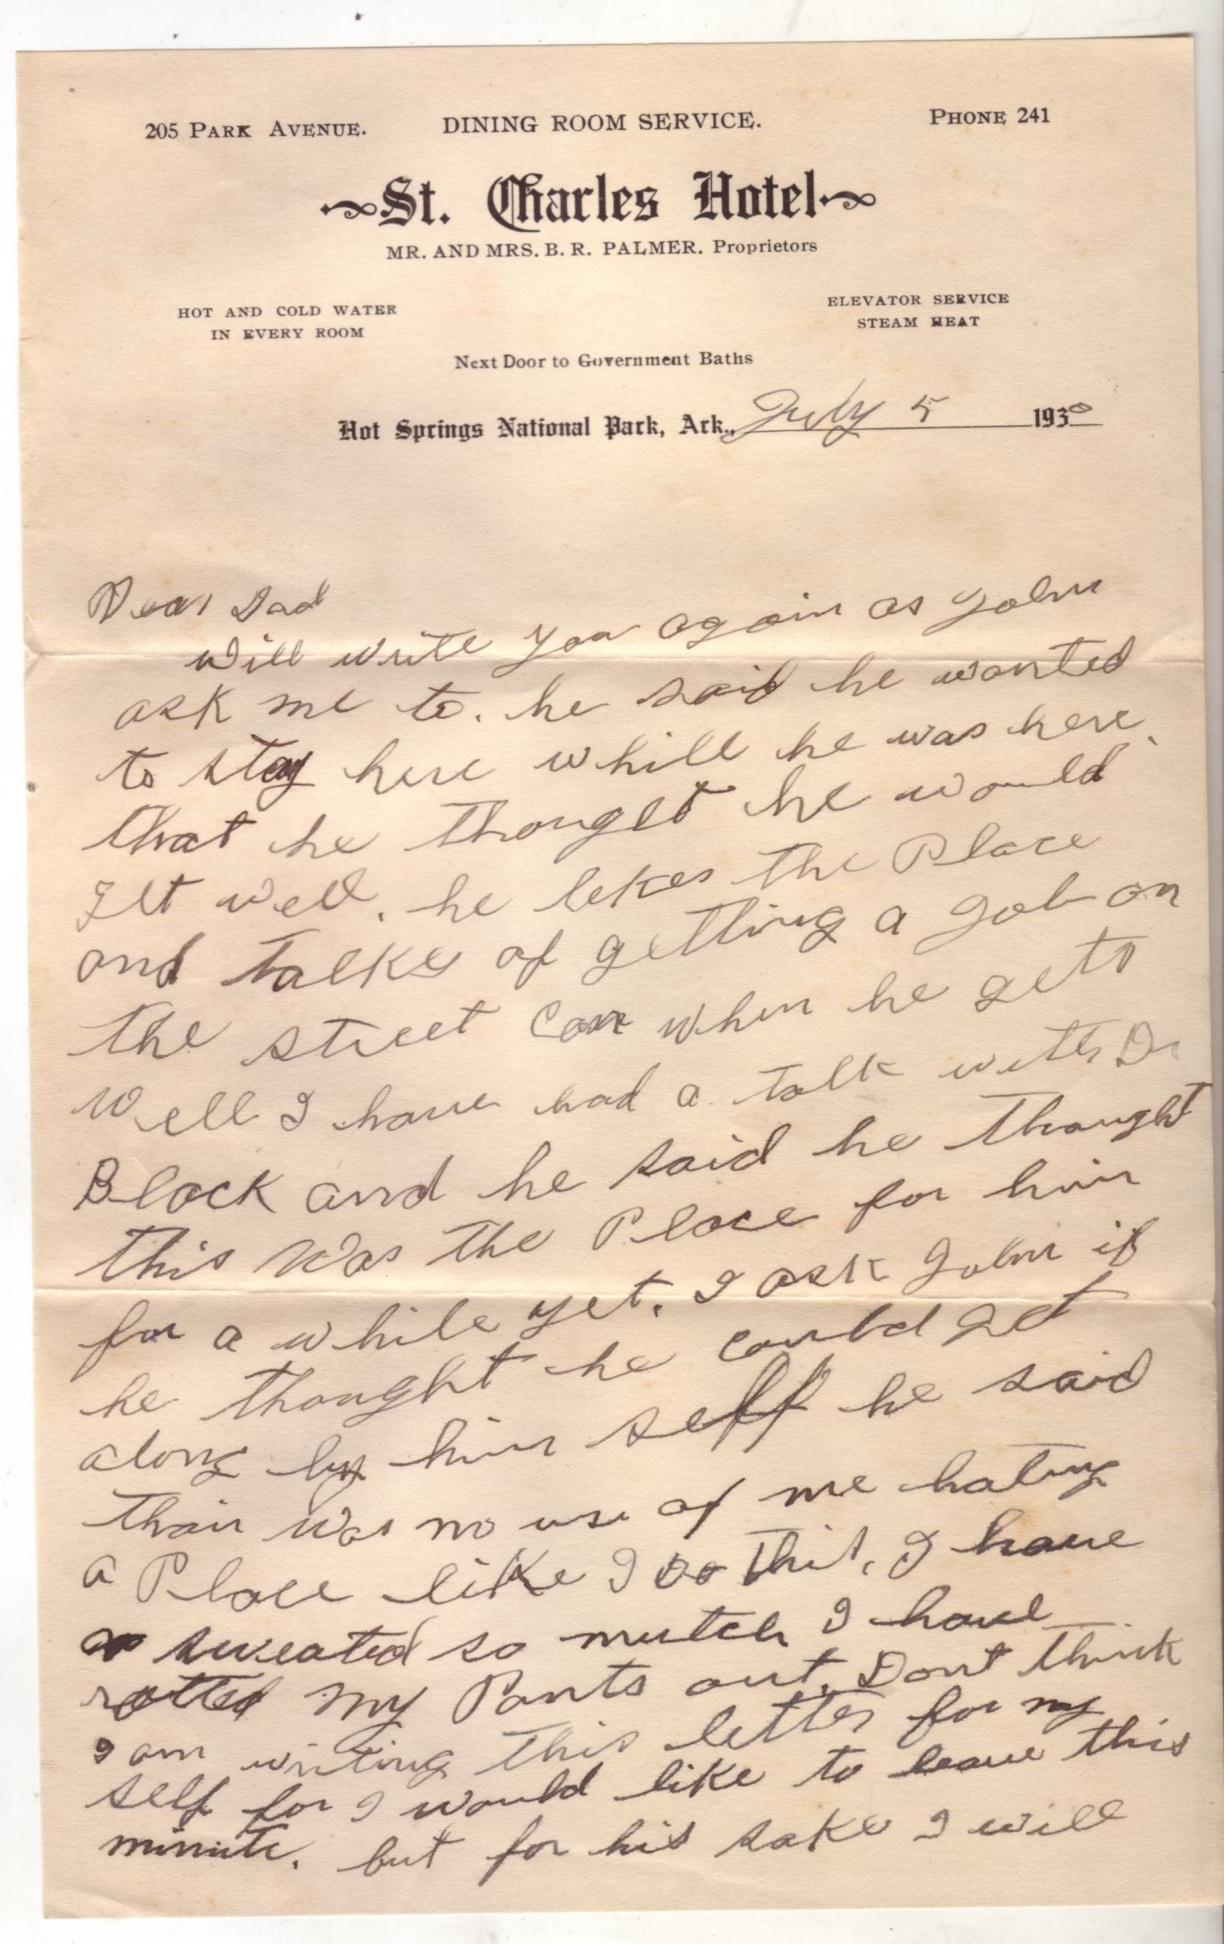 205 PARK AVENUE. DINING ROOM SERVICE. PHONE 241
St. Charles Hotel
MR. AND MRS. B. R. PALMER. Proprietors
HOT AND COLD WATER
IN EVERY ROOM
ELEVATOR SERVICE
STEAM HEAT
Next Door to Government Baths
Hot Springs National Park, Ark., July 5 1930
Dear Dad
Will write you again as John
ask me to. he said he wanted
to stay here whill he was here.
that he thought he would
get well. he likes the Place
and talks of getting a job on
the street car when he gets
Well I have had a talk with Dr
Block and he said he thought
this was the Place for him
for a while yet. I ask John if
he thought he could get
along by him self he said
thair was no use of me hating
a Place like I do this. I have
sweated so mutch I have
rotted my Pants out. Dont think
I am writing this letter for my
self for I would like to leave this
minute. but for his sake I will